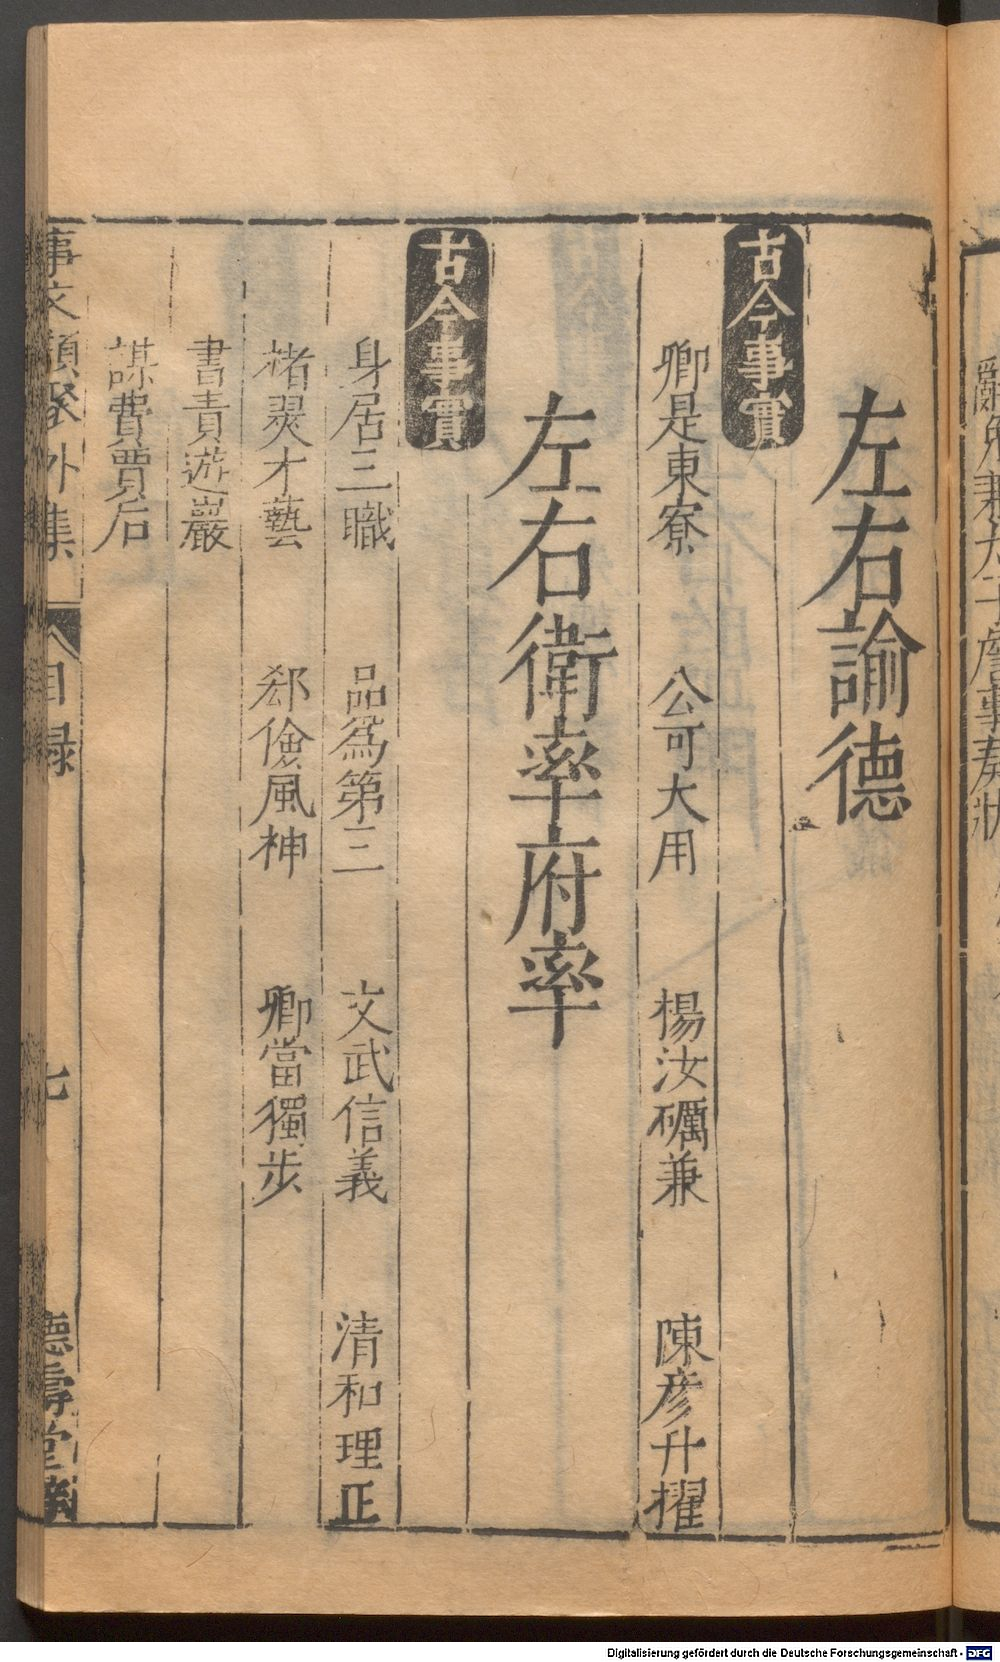 左右諭德
古今事實
卿是東寮　公可大用　楊汝礪兼　陳彥升擢
左右衛率府率
古今事實
身居三職　品爲第三　文武信義　清和理正
楮翜才藝　郄儉風神　卿當獨步
書責遊巖
謀費賈后
事文類聚外集　目録　七　德壽堂
Digitalisierung gefördert durch die Deutsche Forschungsgemeinschaft - DFG